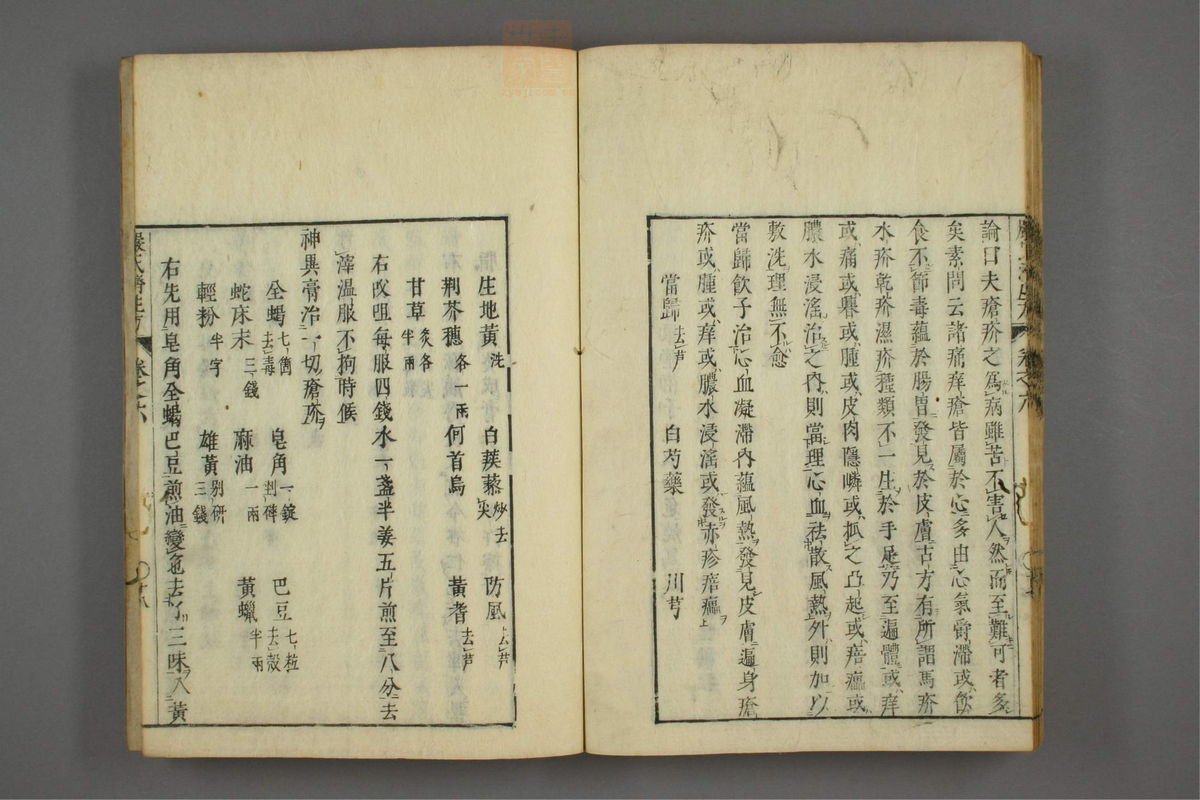 論曰夫瘡疥之爲病雖苦不害人然而至難可者多
矣素問云諸痛痒瘡皆屬於心多由心氣欝滯或飲
食不節毒蘊於腸胃發見於皮膚古方有所謂馬疥
水疥乾疥濕疥種類不一生於手足乃至遍體或痒
或痛或㿇或腫或皮肉隱嶙或抓之凸起或㾦㿔或
膿水浸淫治之内則當理心血祛散風熱外則加以
敷洗理無不愈
當歸飲子治心血凝滯内蘊風熱發見皮膚遍身瘡
疥或腫或痒或膿水浸淫或發赤疹㾦㿔
當歸去芦 白芍藥 川芎
生地黃洗 白蒺藜炒去尖 防風去芦
荆芥穗各一兩 何首烏 黃耆去芦
甘草炙各半兩
右㕮咀每服四錢水一盞半姜五片煎至八分去
滓温服不拘時候
神異膏治一切瘡疥
全蝎七箇去毒 皂角一錠剉碎 巴豆七粒去殼
蛇床末三錢 麻油一兩 黃蠟半兩
輕粉半字 雄黃別研三錢
右先用皂角全蝎巴豆煎油變色去了三味入黃
嚴氏濟生方 卷之六 ○十八